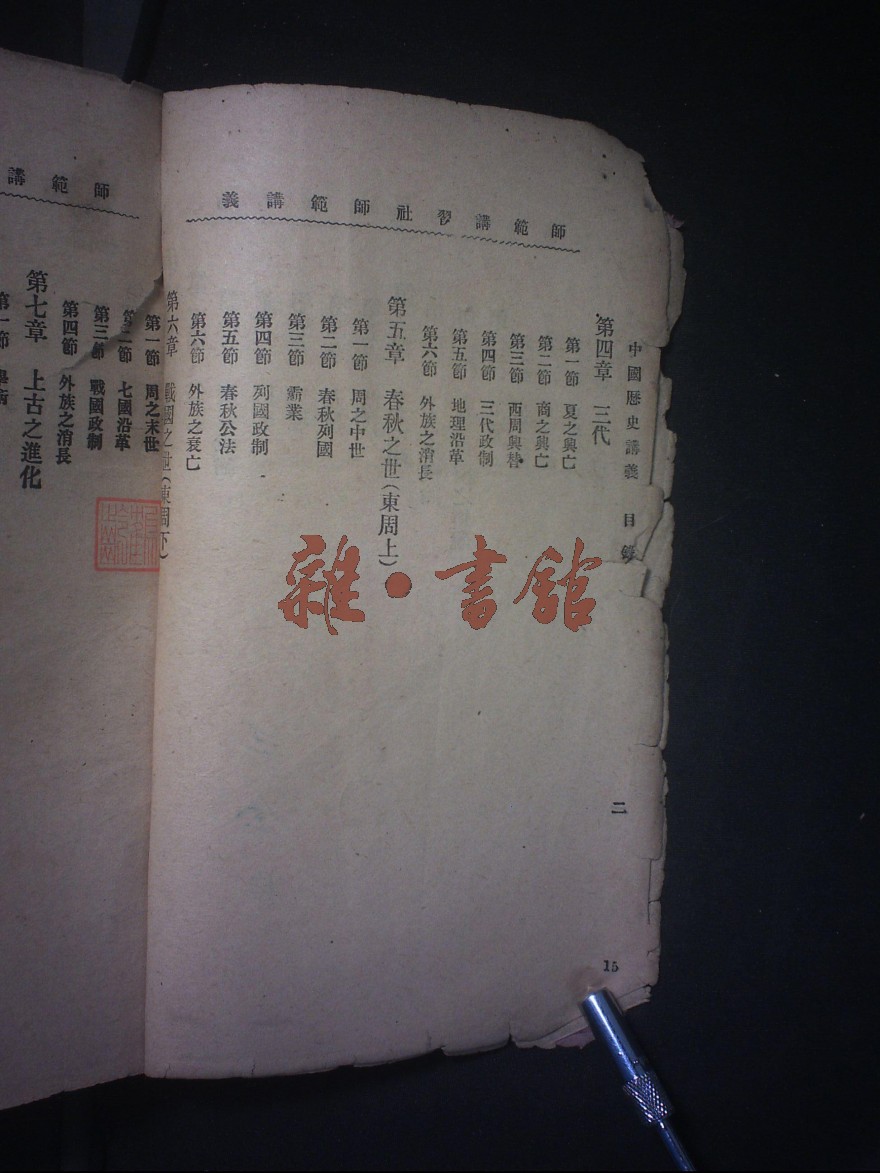 師範講習社師範講義
中國歷史講義 目錄
二
15
第四章 三代
第一節 夏之興亡
第二節 商之興亡
第三節 西周興替
第四節 三代政制
第五節 地理沿革
第六節 外族之消長
第五章 春秋之世(東周上)
第一節 周之中世
第二節 春秋列國
第三節 霸業
第四節 列國政制
第五節 春秋公法
第六節 外族之衰亡
第六章 戰國之世(東周下)
師範講
第一節 周之末世
第二節 七國沿革
第三節 戰國政制
第四節 外族之消長
第七章 上古之進化
第一節 學術
雜·書館